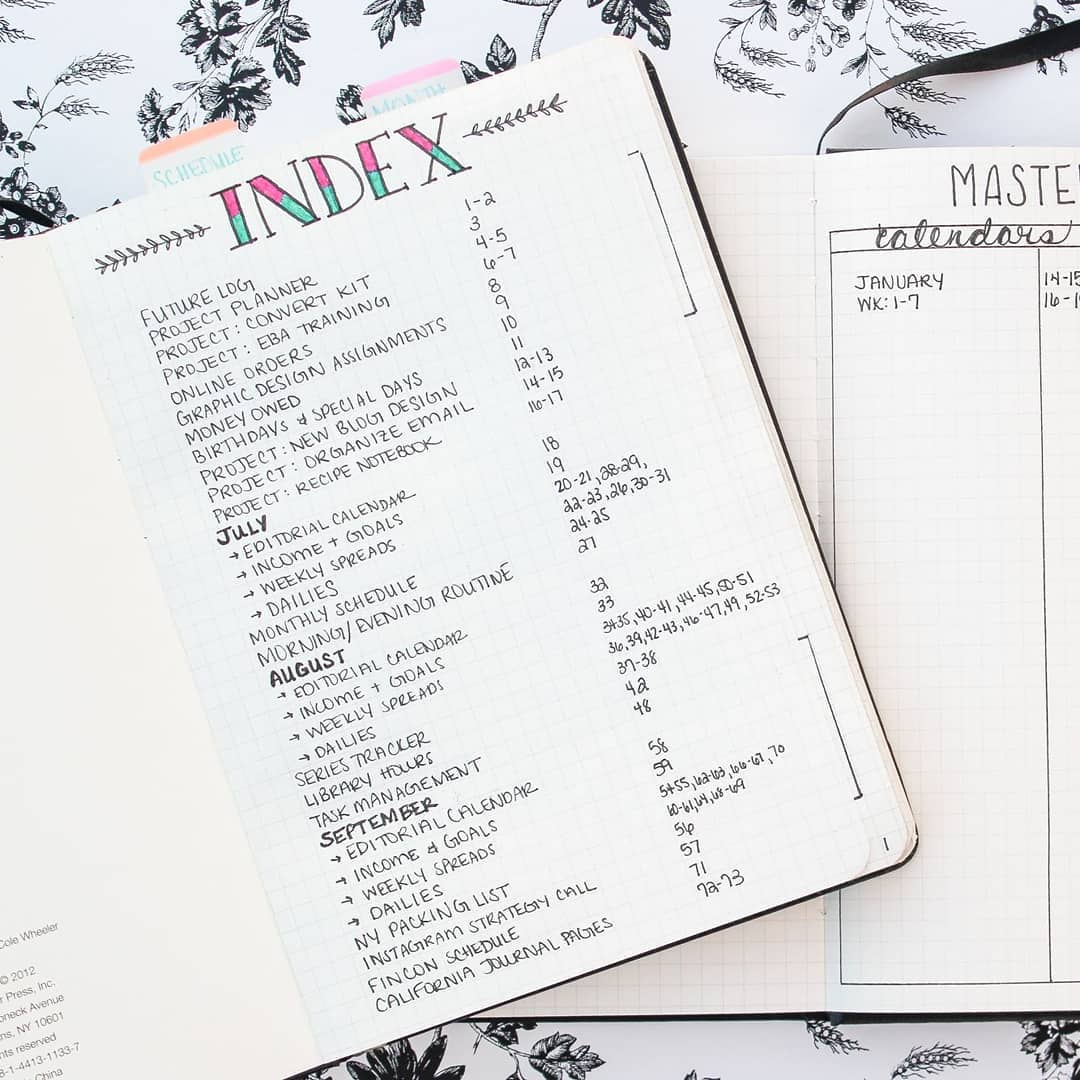 SCHEDULE
MONTH
INDEX
FUTURE LOG 1-2
PROJECT PLANNER 3
PROJECT: CONVERT KIT 4-5
PROJECT: EBA TRAINING 6-7
ONLINE ORDERS 8
GRAPHIC DESIGN ASSIGNMENTS 9
MONEY OWED 10
BIRTHDAYS & SPECIAL DAYS 11
PROJECT: NEW BLOG DESIGN 12-13
PROJECT: ORGANIZE EMAIL 14-15
PROJECT: RECIPE NOTEBOOK 16-17
JULY
→ EDITORIAL CALENDAR 18
→ INCOME + GOALS 19
→ WEEKLY SPREADS 20-21, 28-29,
→ DAILIES 22-23, 26, 30-31
MONTHLY SCHEDULE 24-25
MORNING/EVENING ROUTINE 27
AUGUST
→ EDITORIAL CALENDAR 32
→ INCOME + GOALS 33
→ WEEKLY SPREADS 34-35, 40-41, 44-45, 50-51
→ DAILIES 36, 39, 42-43, 46-47, 49, 52-53
SERIES TRACKER 37-38
LIBRARY HOURS 42
TASK MANAGEMENT 48
SEPTEMBER
→ EDITORIAL CALENDAR 58
→ INCOME & GOALS 59
→ WEEKLY SPREADS 54-55, 62-63, 66-67, 70
→ DAILIES 60-61, 64, 68-69
NY PACKING LIST 56
INSTAGRAM STRATEGY CALL 57
FINCON SCHEDULE 71
CALIFORNIA JOURNAL PAGES 72-73
1
Cole Wheeler
© 2012
Press, Inc.
Avenue
NY 10601
reserved
4413-1133-7
China
MASTE
calendars
JANUARY 14-15
WK: 1-7 16-1